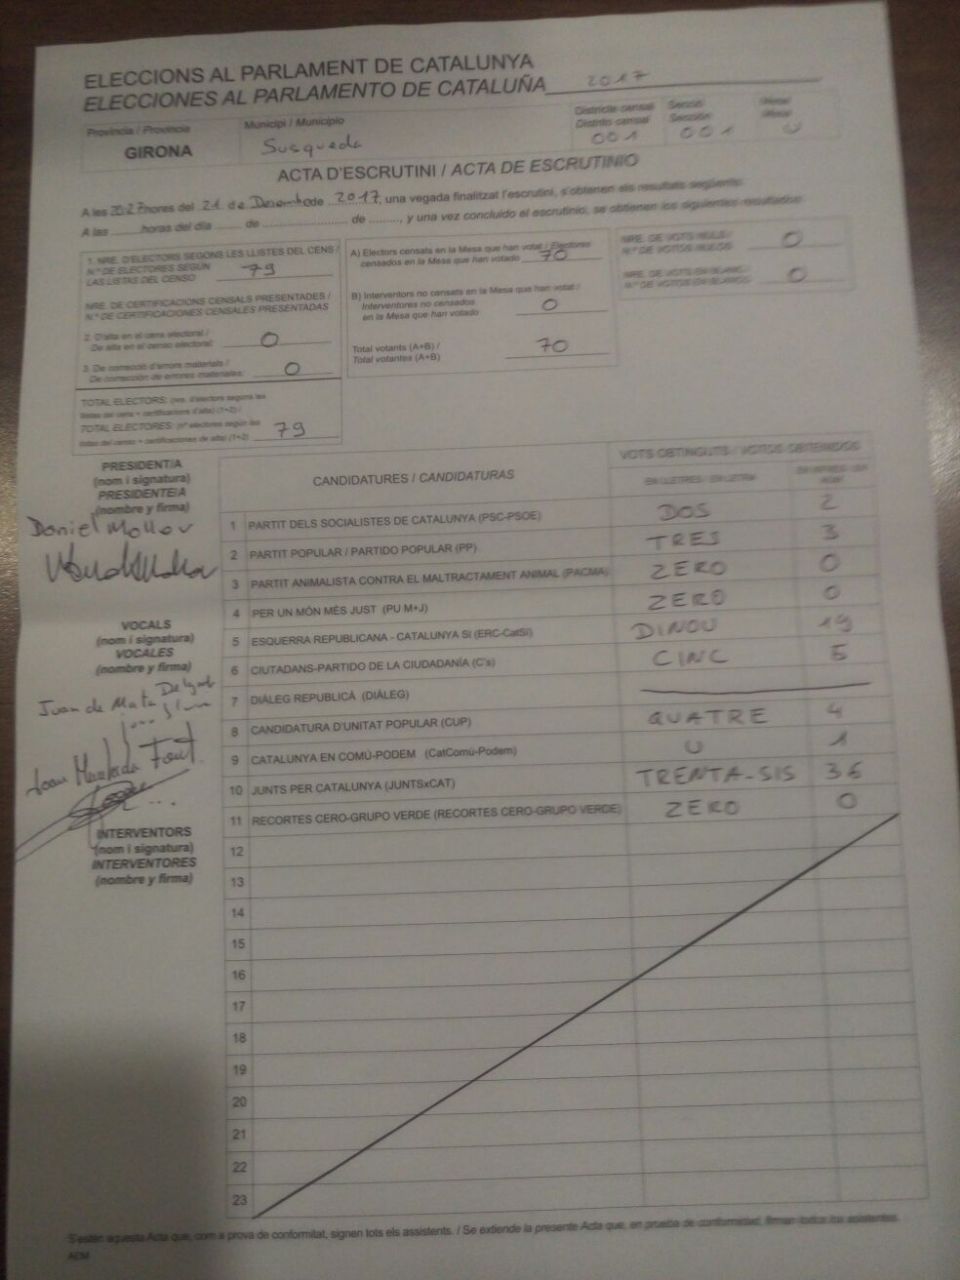 ELECCIONS AL PARLAMENT DE CATALUNYA
ELECCIONES AL PARLAMENTO DE CATALUÑA 2017
Província / Provincia
GIRONA
Municipi / Municipio
Susqueda
Districte censal
Distrito censal
001
Secció
Sección
001
Mesa/
Mesa
U
ACTA D'ESCRUTINI / ACTA DE ESCRUTINIO
A les hores del 21 de de 2017, una vegada finalitzat l'escrutini, s'obtenen els resultats següents:
A las horas del día de de , y una vez concluido el escrutinio, se obtienen los siguientes resultados
1. NRE. D'ELECTORS SEGONS LES LLISTES DEL CENS /
N.º DE ELECTORES SEGÚN
LAS LISTAS DEL CENSO 79
NRE. DE CERTIFICACIONS CENSALS PRESENTADES /
N.º DE CERTIFICACIONES CENSALES PRESENTADAS
2. D'alta en el cens electoral /
De alta en el censo electoral: 0
3. De correcció d'errors materials /
De corrección de errores materiales: 0
TOTAL ELECTORS: (nre. d'electors segons les
llistes del cens + certificacions d'alta) (1+2) /
TOTAL ELECTORES: (nº electores según las
listas del censo + certificaciones de alta) (1+2) 79
A) Electors censats en la Mesa que han votat / Electores
censados en la Mesa que han votado 70
B) Interventors no censats en la Mesa que han votat /
Interventores no censados
en la Mesa que han votado 0
Total votants (A+B) /
Total votantes (A+B) 70
NRE. DE VOTS NULS /
N.º DE VOTOS NULOS 0
NRE. DE VOTS EN BLANC /
N.º DE VOTOS EN BLANCO 0
PRESIDENT/A
(nom i signatura)
PRESIDENTE/A
(nombre y firma)
Daniel
VOCALS
(nom i signatura)
VOCALES
(nombre y firma)
Juan de Mata Delgado
Joan Font
INTERVENTORS
(nom i signatura)
INTERVENTORES
(nombre y firma)
CANDIDATURES / CANDIDATURAS
VOTS OBTINGUTS / VOTOS OBTENIDOS
EN LLETRES / EN LETRA
1 PARTIT DELS SOCIALISTES DE CATALUNYA (PSC-PSOE) DOS 2
2 PARTIT POPULAR / PARTIDO POPULAR (PP) TRES 3
3 PARTIT ANIMALISTA CONTRA EL MALTRACTAMENT ANIMAL (PACMA) ZERO 0
4 PER UN MÓN MÉS JUST (PU M+J) ZERO 0
5 ESQUERRA REPUBLICANA - CATALUNYA SÍ (ERC-CatSí) DINOU 19
6 CIUTADANS-PARTIDO DE LA CIUDADANÍA (C's) CINC 5
7 DIÀLEG REPUBLICÀ (DIÀLEG)
8 CANDIDATURA D'UNITAT POPULAR (CUP) QUATRE 4
9 CATALUNYA EN COMÚ-PODEM (CatComú-Podem) U 1
10 JUNTS PER CATALUNYA (JUNTSxCAT) TRENTA-SIS 36
11 RECORTES CERO-GRUPO VERDE (RECORTES CERO-GRUPO VERDE) ZERO 0
12
13
14
15
16
17
18
19
20
21
22
23
S'estén aquesta Acta que, com a prova de conformitat, signen tots els assistents. / Se extiende la presente Acta que, en prueba de conformidad, firman todos los asistentes.